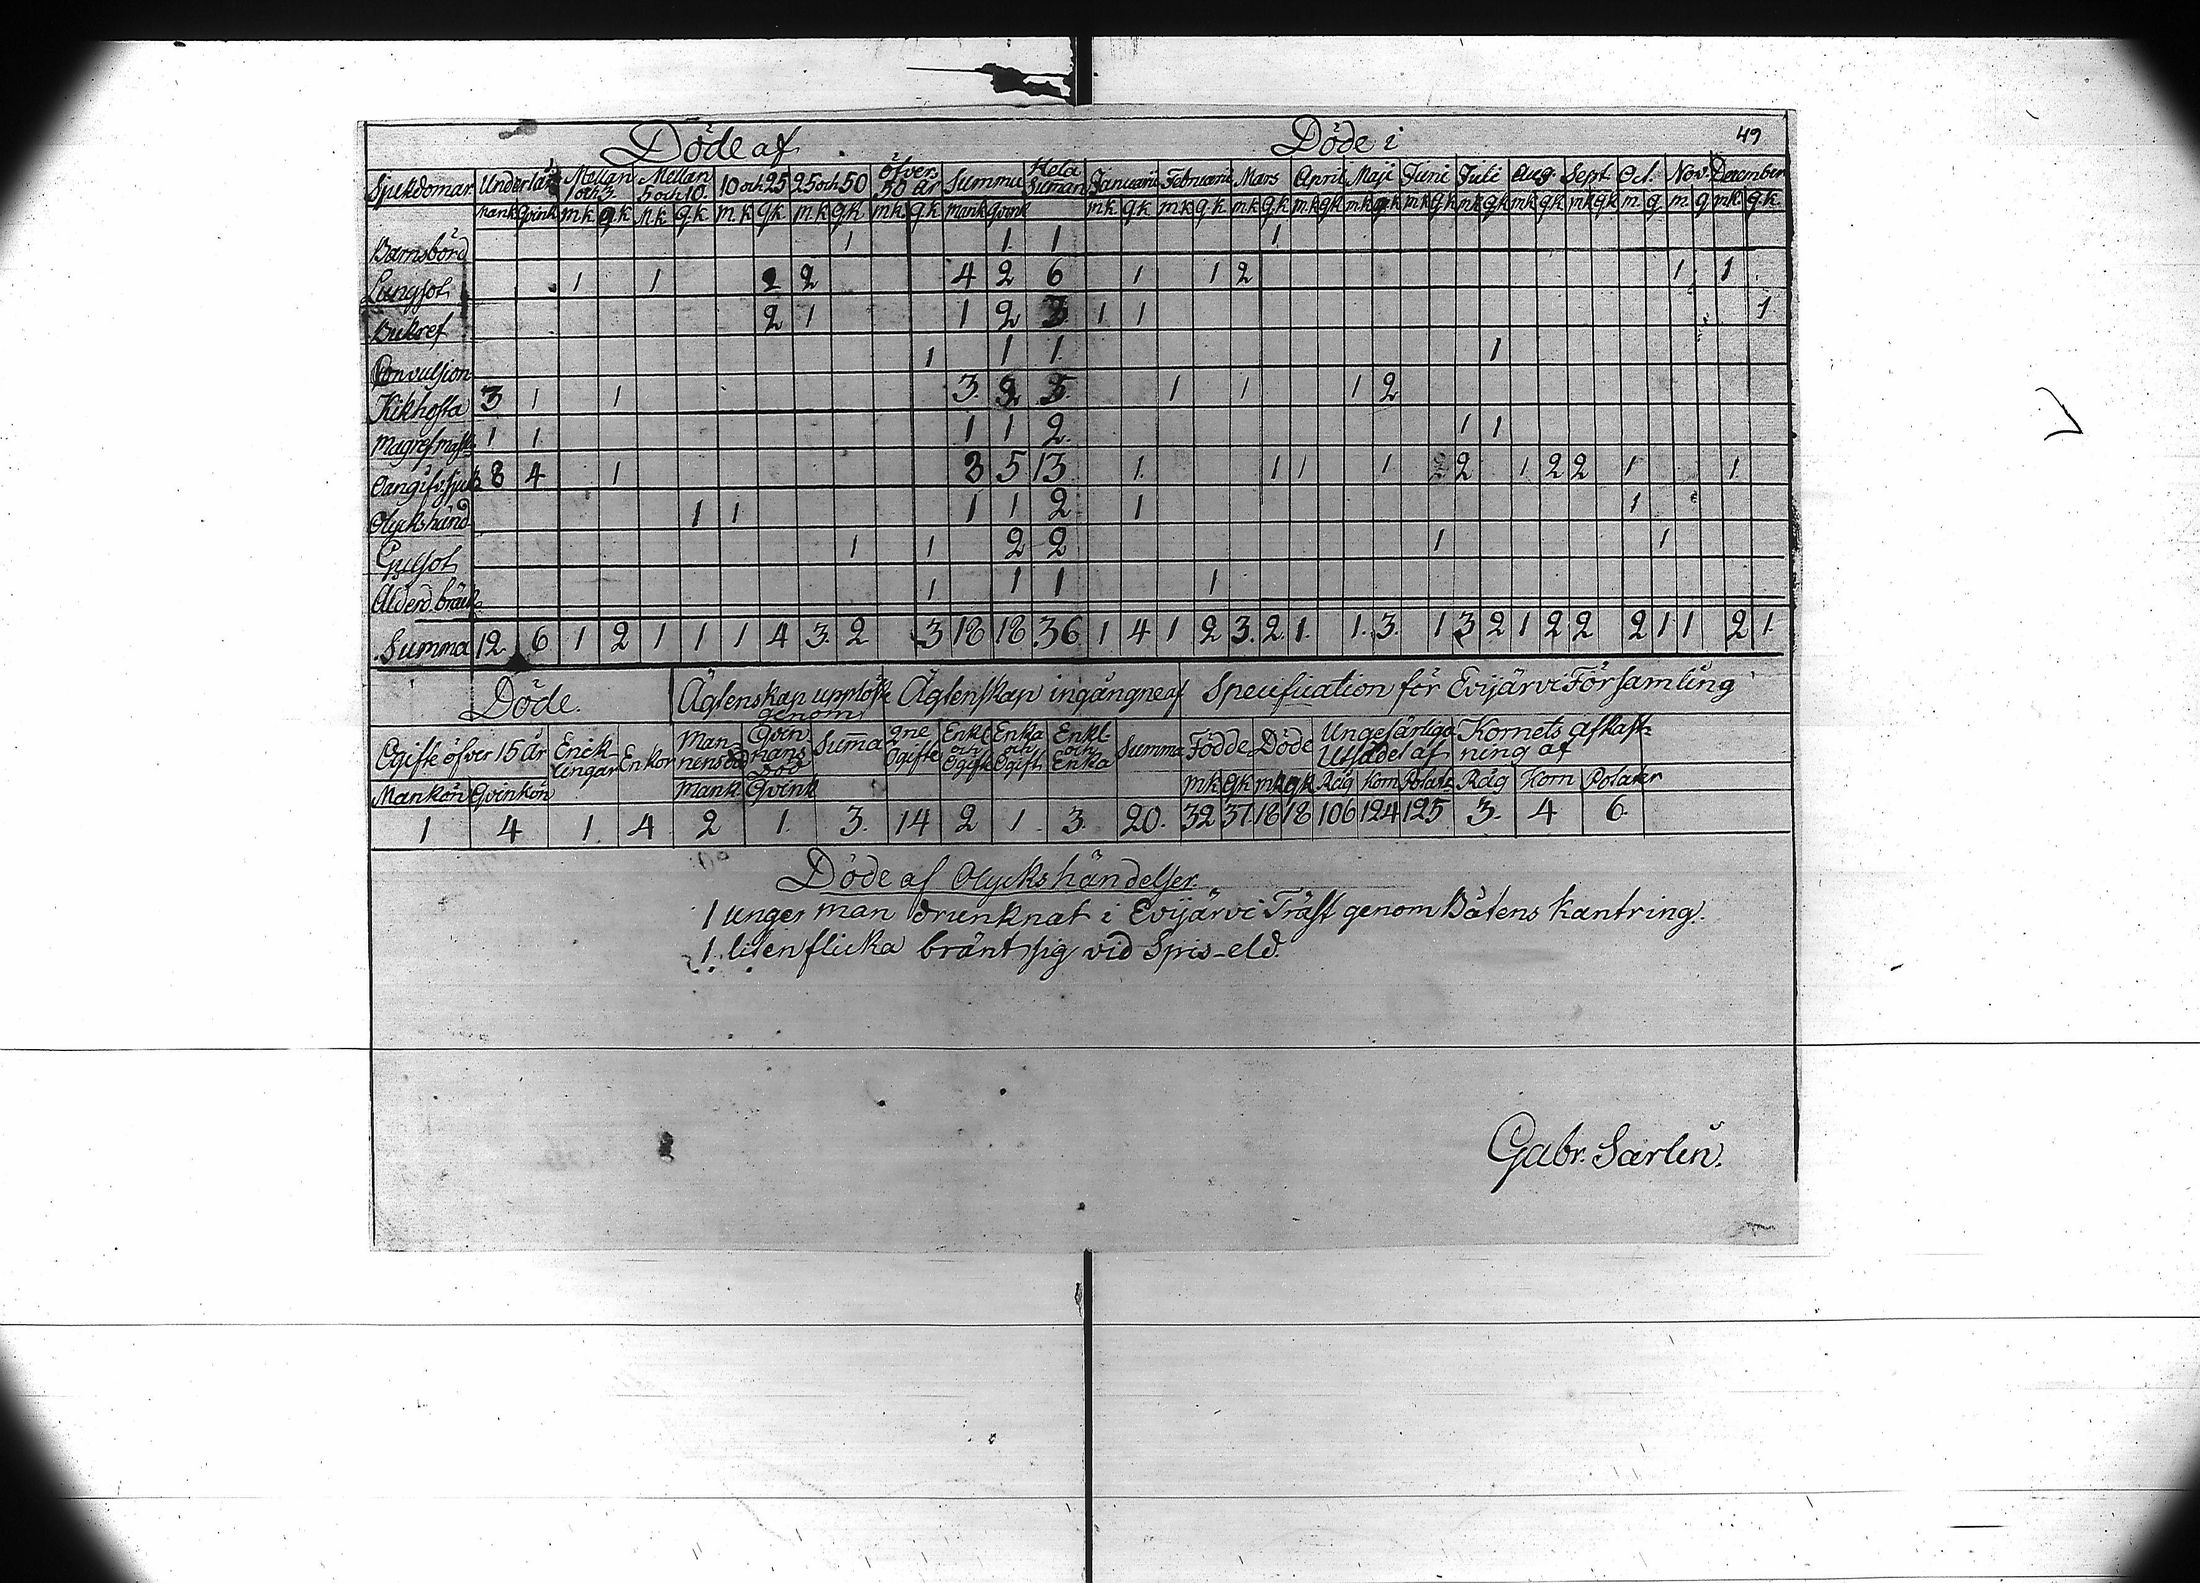 Döde af Döde i 49
Sjukdomar Under 1 år Mellan 1 och 3 Mellan 5 och 10. 10 och 25 25 och 50 öfver 50 år Summa Hela Suman Januarii Februarii Mars April Maji Juni Juli Aug. Sept. Oct. Nov. December
Mank Qvink mk qk mk qk mk qk mk qk mk qk Mank Qvink mk qk mk qk mk qk mk qk mk qk mk qk mk qk mk qk mk qk m q m q mk qk
Barnsbörd 1 1 1 1
Lungsot 1 1 2 2 4 2 6 1 1 2 1 1
Bukref 2 1 1 2 3 1 1 1
Convulsion 1 1 1 1
Kikhosta 3 1 1 3 2 5 1 1 1 2
Magref 1 1 1 1 2 1 1
Oangifv. sjuk 8 4 1 8 5 13 1 1 1 1 2 2 1 2 2 1 1
Olyckshänd 1 1 1 1 2 1 1
Gulsot 1 1 2 2 1 1
Alderd. bräck 1 1 1 1
Summa 12 6 1 2 1 1 1 4 3 2 3 18 18 36 1 4 1 2 3 2 1 1 3 1 3 2 1 2 2 2 1 1 2 1
Döde. Ägtenskap upplöste genom Ägtenskap ingångne af Specification för Evijärvi Församling
Ogifte öfver 15 år Enck lingar Enkor Man nens död Qvin nans död Summa 2ne Ogifte Enkl. och Ogift Enka och Ogift Enkl. och Enka Summa Födde Döde Ungefärliga Utsädet af Kornets afkast- ning af
Mankön Qvinkön Mank Qvink mk qk mk qk Råg Korn Potater Råg Korn Potater
1 4 1. 4 2 1. 3. 14 2 1. 3. 20. 32 37 18 18 106 124 125 3. 4 6.
Döde af Olyckshändelser.
1 unger man drunknat i Evijärvi Träsk genom Båtens kantring.
1. liten flicka bränt sig vid Spis-eld.
Gabr. Sarlin.